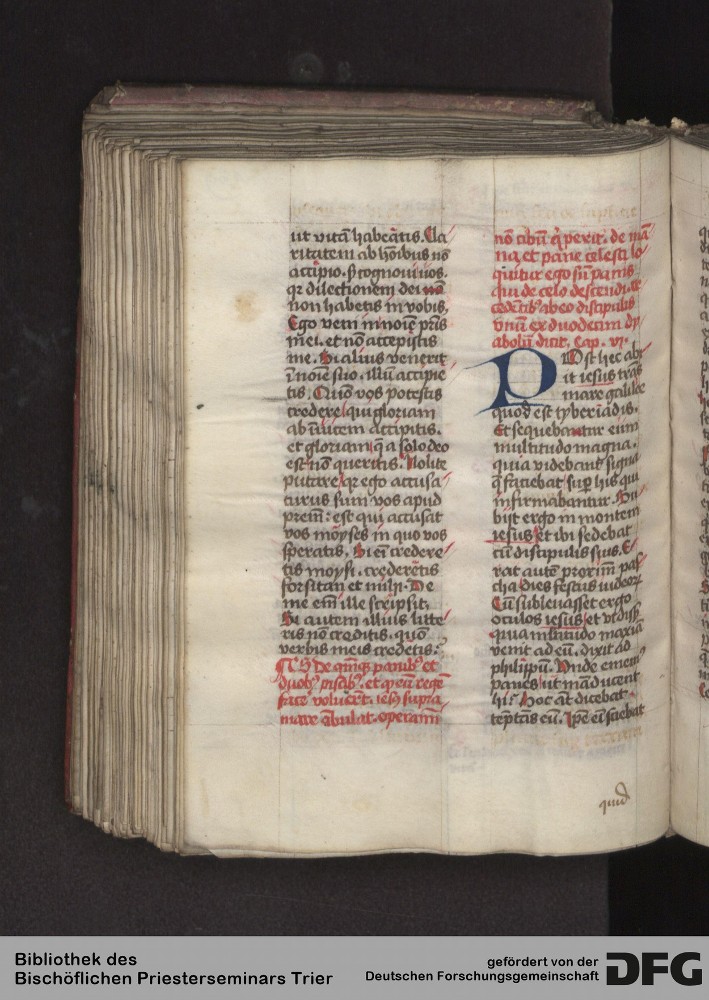 ut vitā habeātis. Cla
ritatem ab hōibus nō
accipio. s̄ cognoui uos.
qr dilectionem dei
non habetis in vobis.
Ego veni in noīe p̄ris
mei. et nō accepistis
me. Si alius venerit
ī noīe suo. illū accipie
tis. Quō vos potestis
credere qui gloriam
ab īuicem accipitis.
et gloriam q̄ a solo deo
est nō queritis. Nolite
putare qr ego accusa
turus sum vos apud
prem̄: est qui accusat
vos moyses in quo vos
speratis. Si eī credere
tis moysi. crederētis
forsitan et mihi. De
me em̄ ille scripsit.
Si autem illius litte
ris nō creditis. quō
verbis meis credetis?
De quīqȝ panibꝰ et
duobꝰ piscibꝰ. et qr eū regē
face volueꝛt. iesꝰ supra
mare ābulat. operam̄
nō cibū q̄ perit. de mā
na et pane celesti lo
quitur ego sū panis
qui de celo descendi. re
cedētibꝰ ab eo discipulis
vnū ex duodecim dy
abolū dicit. Cap. vi.
POst hec abi
it iesus trās
mare galilee
quod est tyberiadis.
Et sequebantur eum
multitudo magna.
quia videbant signa
q̄ faciebat sup̄ his qui
infirmabantur. Su
bijt ergo in montem
iesus et ibi sedebat
cū discipulis suis. E
rat autē proximū pas
cha dies festus iudeoꝝ
Cū subleuasset ergo
oculos iesus et vidiss̄
quia multitudo maxīa
venit ad eū. dixit ad
philippū. Vnde ememꝰ
panes ut māducent
hi? Hoc āt dicebat
tēptās eū. Ipse eī sciebat
quid
Bibliothek des
Bischöflichen Priesterseminars Trier
gefördert von der
Deutschen Forschungsgemeinschaft
DFG